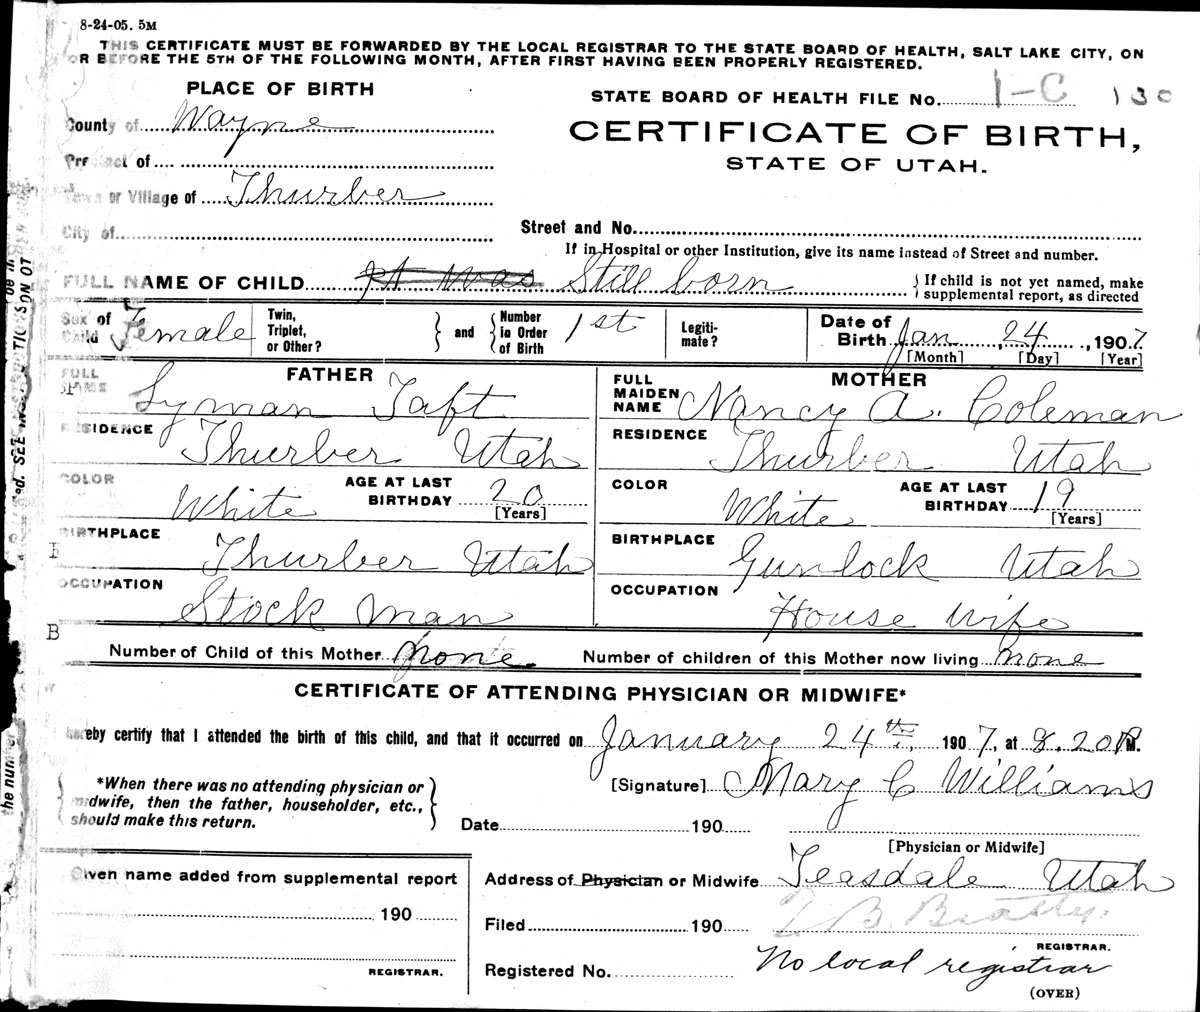 8-24-05. 5M
THIS CERTIFICATE MUST BE FORWARDED BY THE LOCAL REGISTRAR TO THE STATE BOARD OF HEALTH, SALT LAKE CITY, ON
OR BEFORE THE 5TH OF THE FOLLOWING MONTH, AFTER FIRST HAVING BEEN PROPERLY REGISTERED.
PLACE OF BIRTH
STATE BOARD OF HEALTH FILE No. 1-C 130
County of Wayne
CERTIFICATE OF BIRTH,
Precinct of
STATE OF UTAH.
Town or Village of Thurber
City of
Street and No.
If in Hospital or other Institution, give its name instead of Street and number.
FULL NAME OF CHILD It was Still born
If child is not yet named, make
supplemental report, as directed
Sex of Child Female
Twin, Triplet, or Other?
and Number in Order of Birth 1st
Legiti-mate?
Date of Birth Jan 24, 1907
[Month] [Day] [Year]
FATHER
FULL NAME Lyman Taft
RESIDENCE Thurber Utah
COLOR White
AGE AT LAST BIRTHDAY 20
[Years]
BIRTHPLACE Thurber Utah
OCCUPATION Stock man
MOTHER
FULL MAIDEN NAME Nancy A. Coleman
RESIDENCE Thurber Utah
COLOR White
AGE AT LAST BIRTHDAY 19
[Years]
BIRTHPLACE Gunlock Utah
OCCUPATION House wife
B
Number of Child of this Mother none. Number of children of this Mother now living none
CERTIFICATE OF ATTENDING PHYSICIAN OR MIDWIFE*
hereby certify that I attended the birth of this child, and that it occurred on January 24th, 1907, at 8.20 P M.
*When there was no attending physician or
midwife, then the father, householder, etc.,
should make this return.
[Signature] Mary C Williams
Date 190
[Physician or Midwife]
Given name added from supplemental report
190
REGISTRAR.
Address of Physician or Midwife Teasdale Utah
Filed 190 B. Beatty.
REGISTRAR.
Registered No. No local registrar
(OVER)
the number
SEE INSTRUCTIONS ON OT